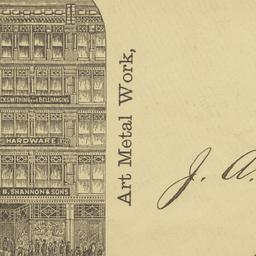 CKSMITHING AND BELLHANGING
HARDWARE
B. SHANNON & SONS
Art Metal Work,
J. A.